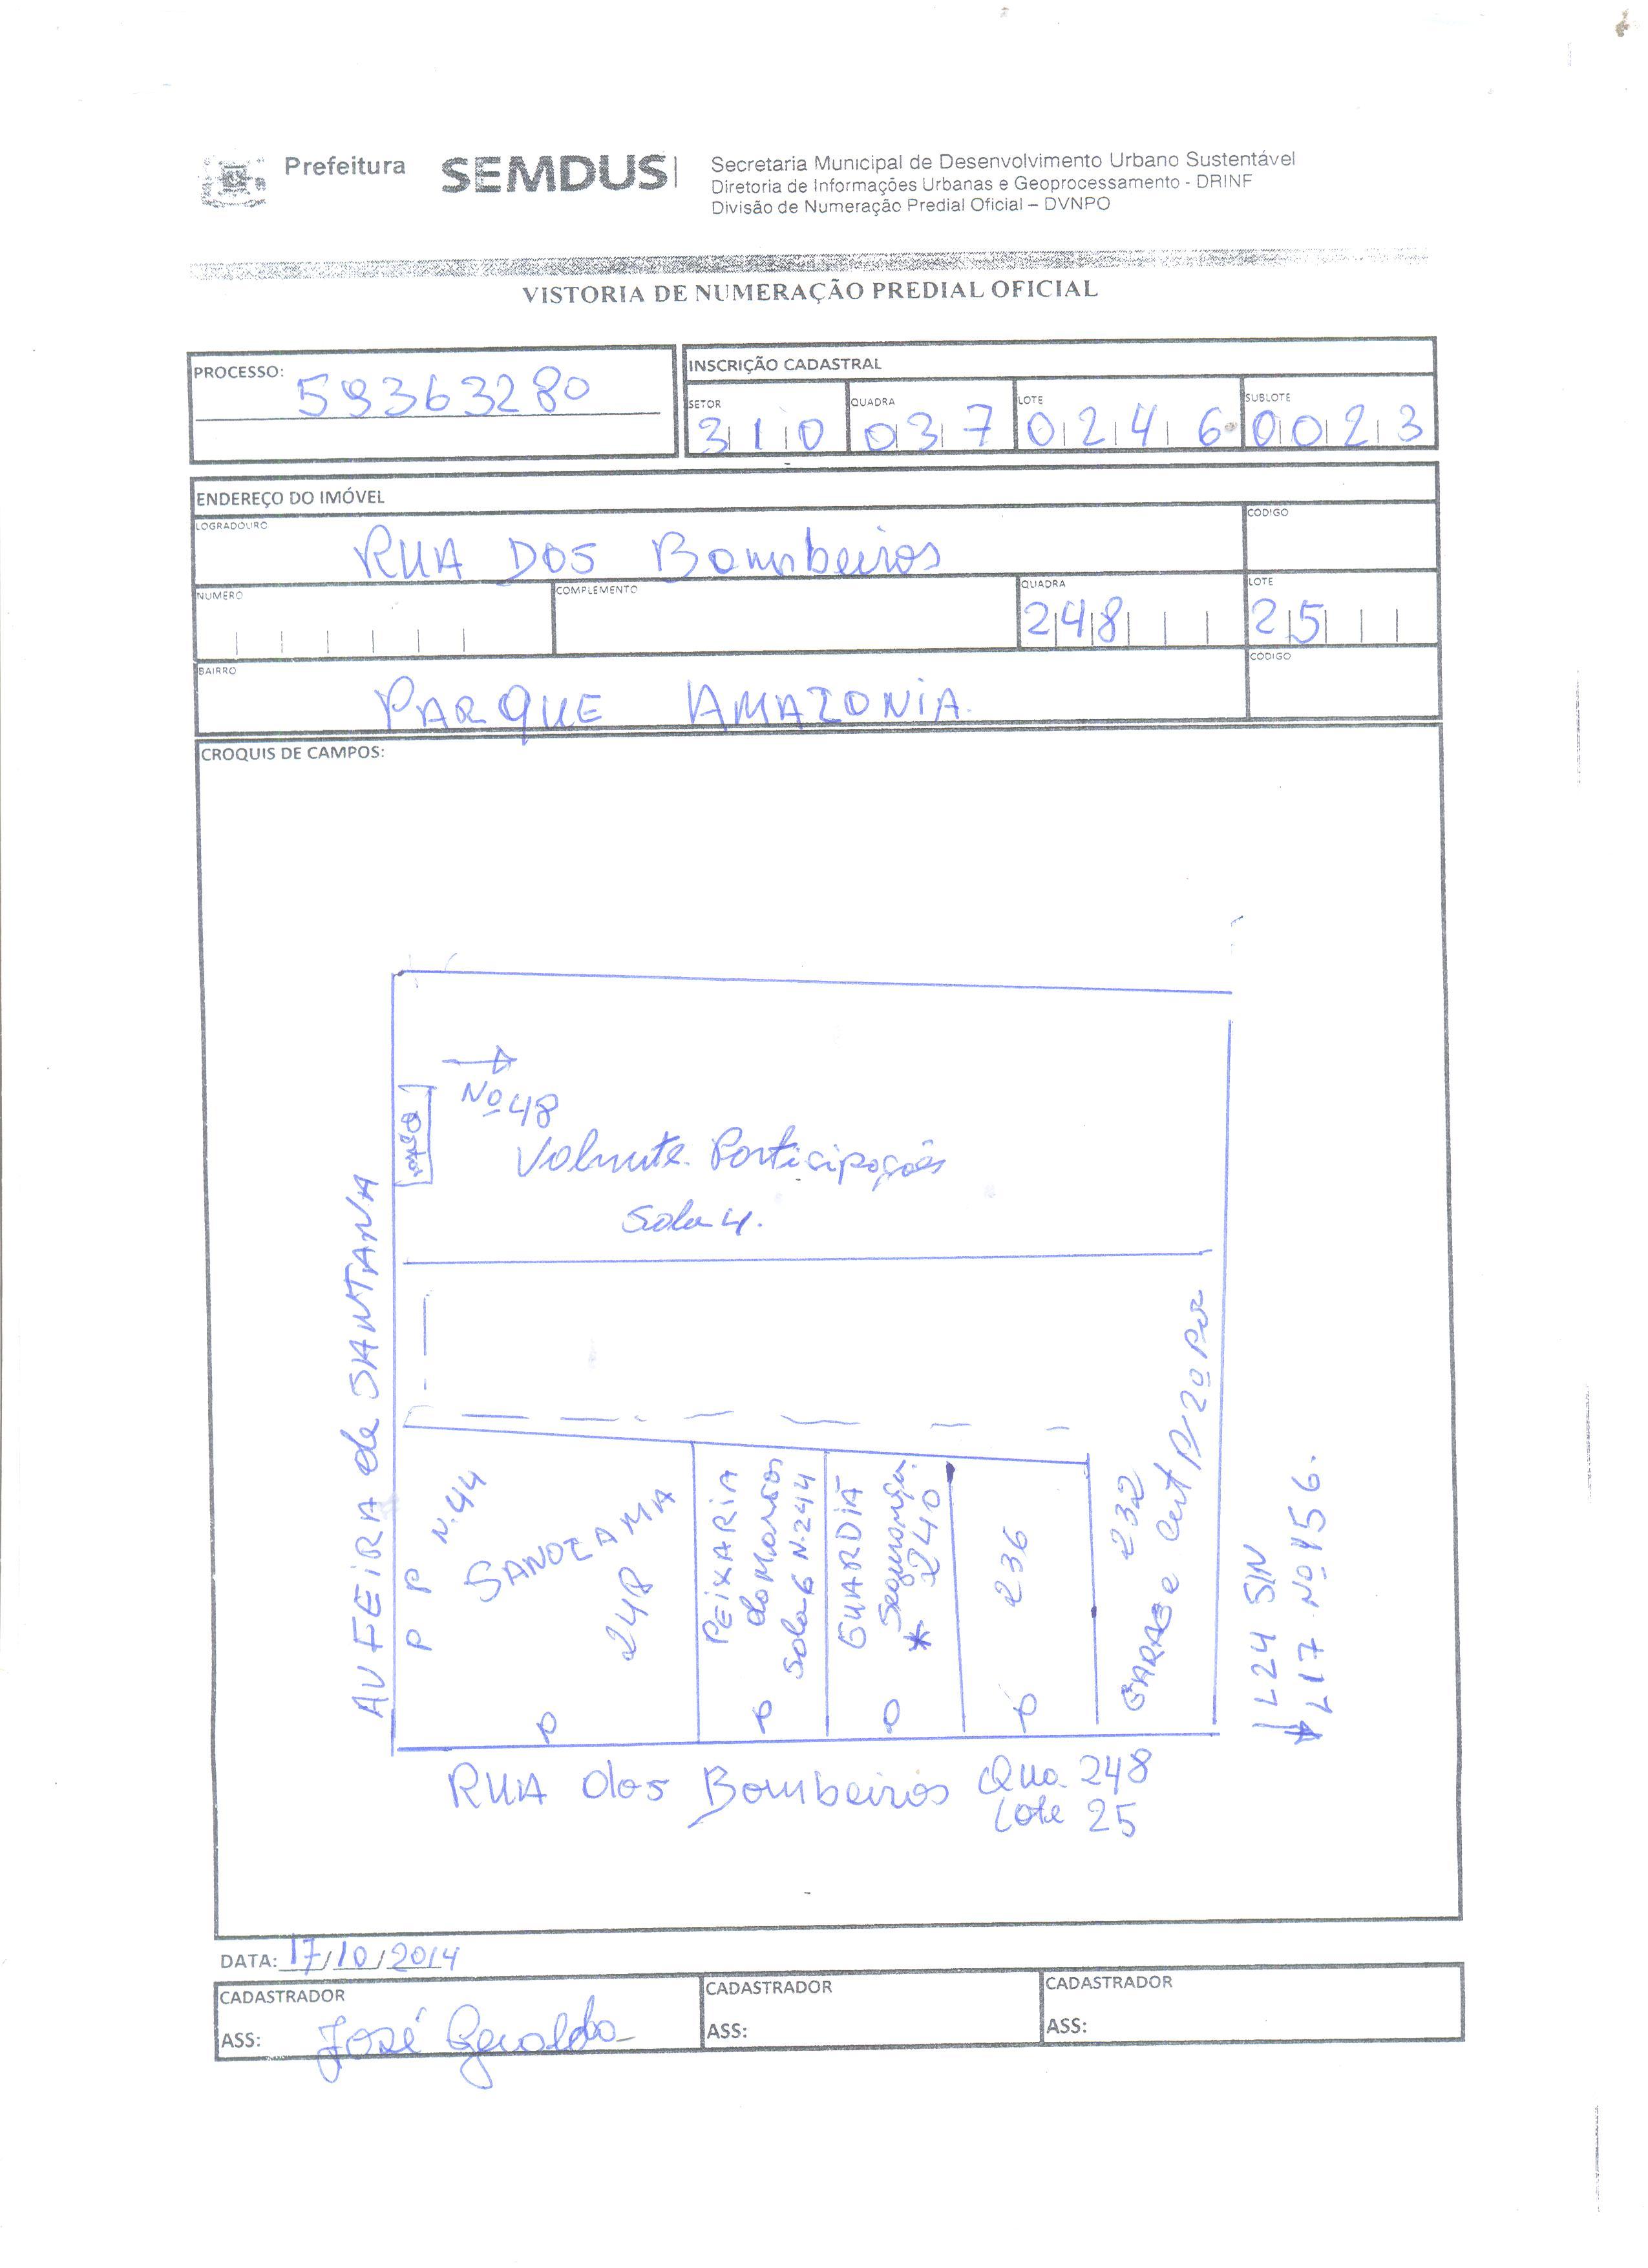 Prefeitura SEMDUS
Secretaria Municipal de Desenvolvimento Urbano Sustentável
Diretoria de Informações Urbanas e Geoprocessamento - DRINF
Divisão de Numeração Predial Oficial – DVNPO
VISTORIA DE NUMERAÇÃO PREDIAL OFICIAL
PROCESSO: 59363280
INSCRIÇÃO CADASTRAL
SETOR QUADRA LOTE SUBLOTE
310 037 0246 0023
ENDEREÇO DO IMÓVEL
LOGRADOURO CÓDIGO
RUA DOS Bombeiros
NUMERO COMPLEMENTO QUADRA LOTE
248 25
BAIRRO CÓDIGO
PARQUE AMAZONIA
CROQUIS DE CAMPOS:
Nº 48
Participações
Sala 4.
AV FEIRA de SANTANA
P P N. 44
248
PEIXARIA
Sala 6 N. 244
GUARDIÃ
Segurança
* 240
236
232
GARAGE P/ 2º
L24 S/N
L17 Nº 456.
RUA dos Bombeiros Qua 248
Lote 25
DATA: 17/10/2014
CADASTRADOR CADASTRADOR CADASTRADOR
ASS: José Geraldo ASS: ASS: